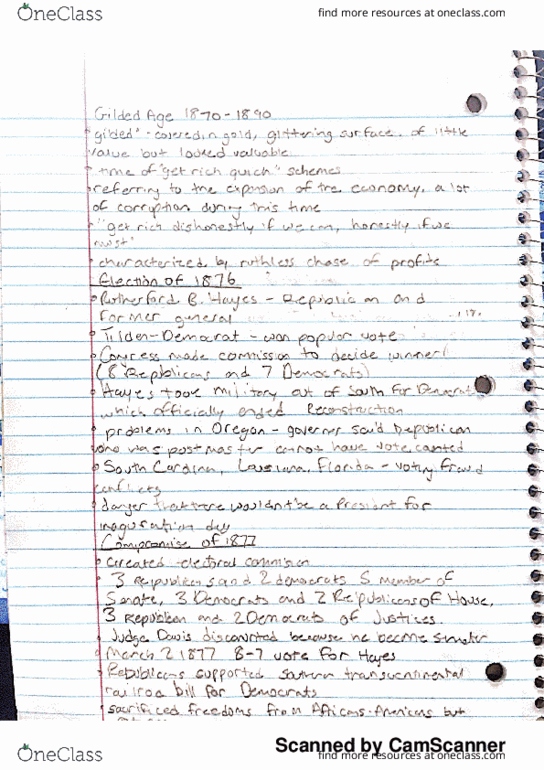 OneClass
find more resources at oneclass.com
Gilded Age 1870-1890
"gilded" - covered in gold, glittering surface of little
value but looked valuable
time of "get rich quick" schemes
referring to the expansion of the economy, a lot
of corruption during this time
"get rich dishonestly if we can, honestly if we
must"
characterized by ruthless chase of profits
Election of 1876
Rutherford B. Hayes - Republican and
former general
Tilden - Democrat - won popular vote
Congress made commission to decide winner
(8 Republicans and 7 Democrats)
Hayes took military out of South for Democrats
which officially ended Reconstruction
problems in Oregon - governor said Republican
who was postmaster cannot have vote counted
South Carolina, Louisiana, Florida - voting fraud
conflicts
danger that there wouldn't be a President for
inauguration day
Compromise of 1877
created electoral commission
3 Republicans and 2 democrats 5 member of
Senate, 3 Democrats and 2 Republicans of House,
3 Republican and 2 Democrats of Justices.
Judge Davis discounted because he become Senator
March 2 1877 8-7 vote for Hayes
Republicans supported southern transcontinental
railroa bill for Democrats
sacrificed freedoms from African-Americans but
OneClass
Scanned by CamScanner
find more resources at oneclass.com